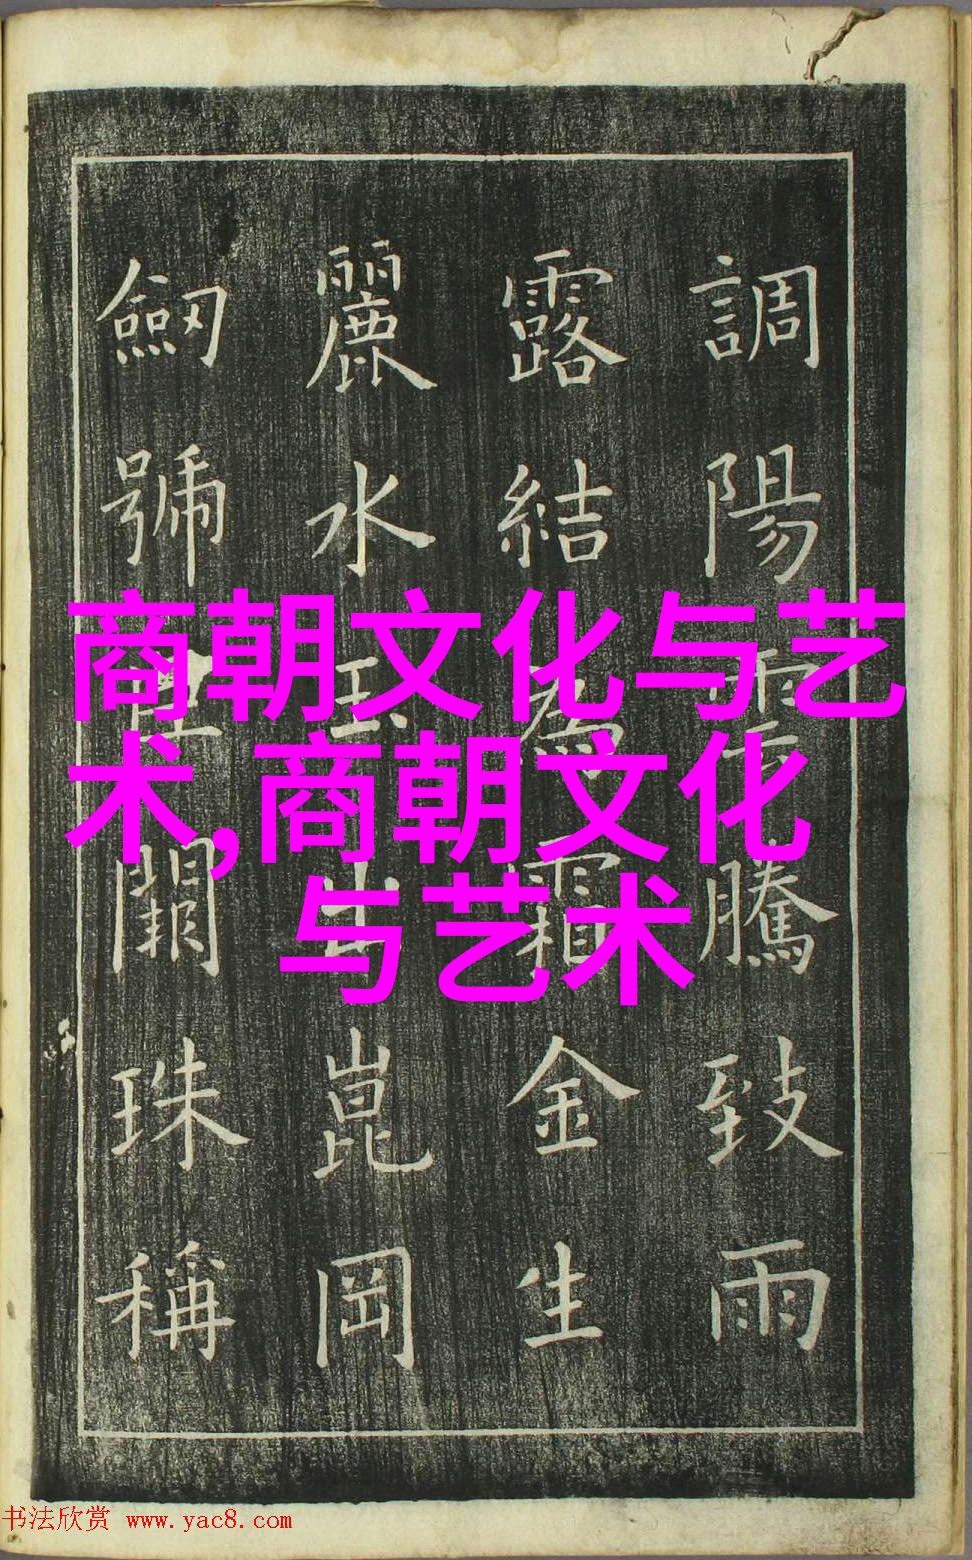 調陽雲騰致雨
露結為霜金生
麗水玉出崑岡
劒號巨闕珠稱
商朝文化与艺
术,商朝文化
与艺术
书法欣赏 www.yac8.com